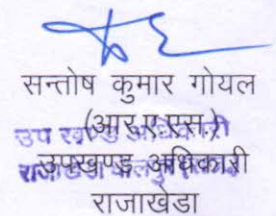 सन्तोष कुमार गोयल
(आर.ए.एस.)
उप खण्ड अधिकारी
उपखण्ड अधिकारी
राजाखेडा